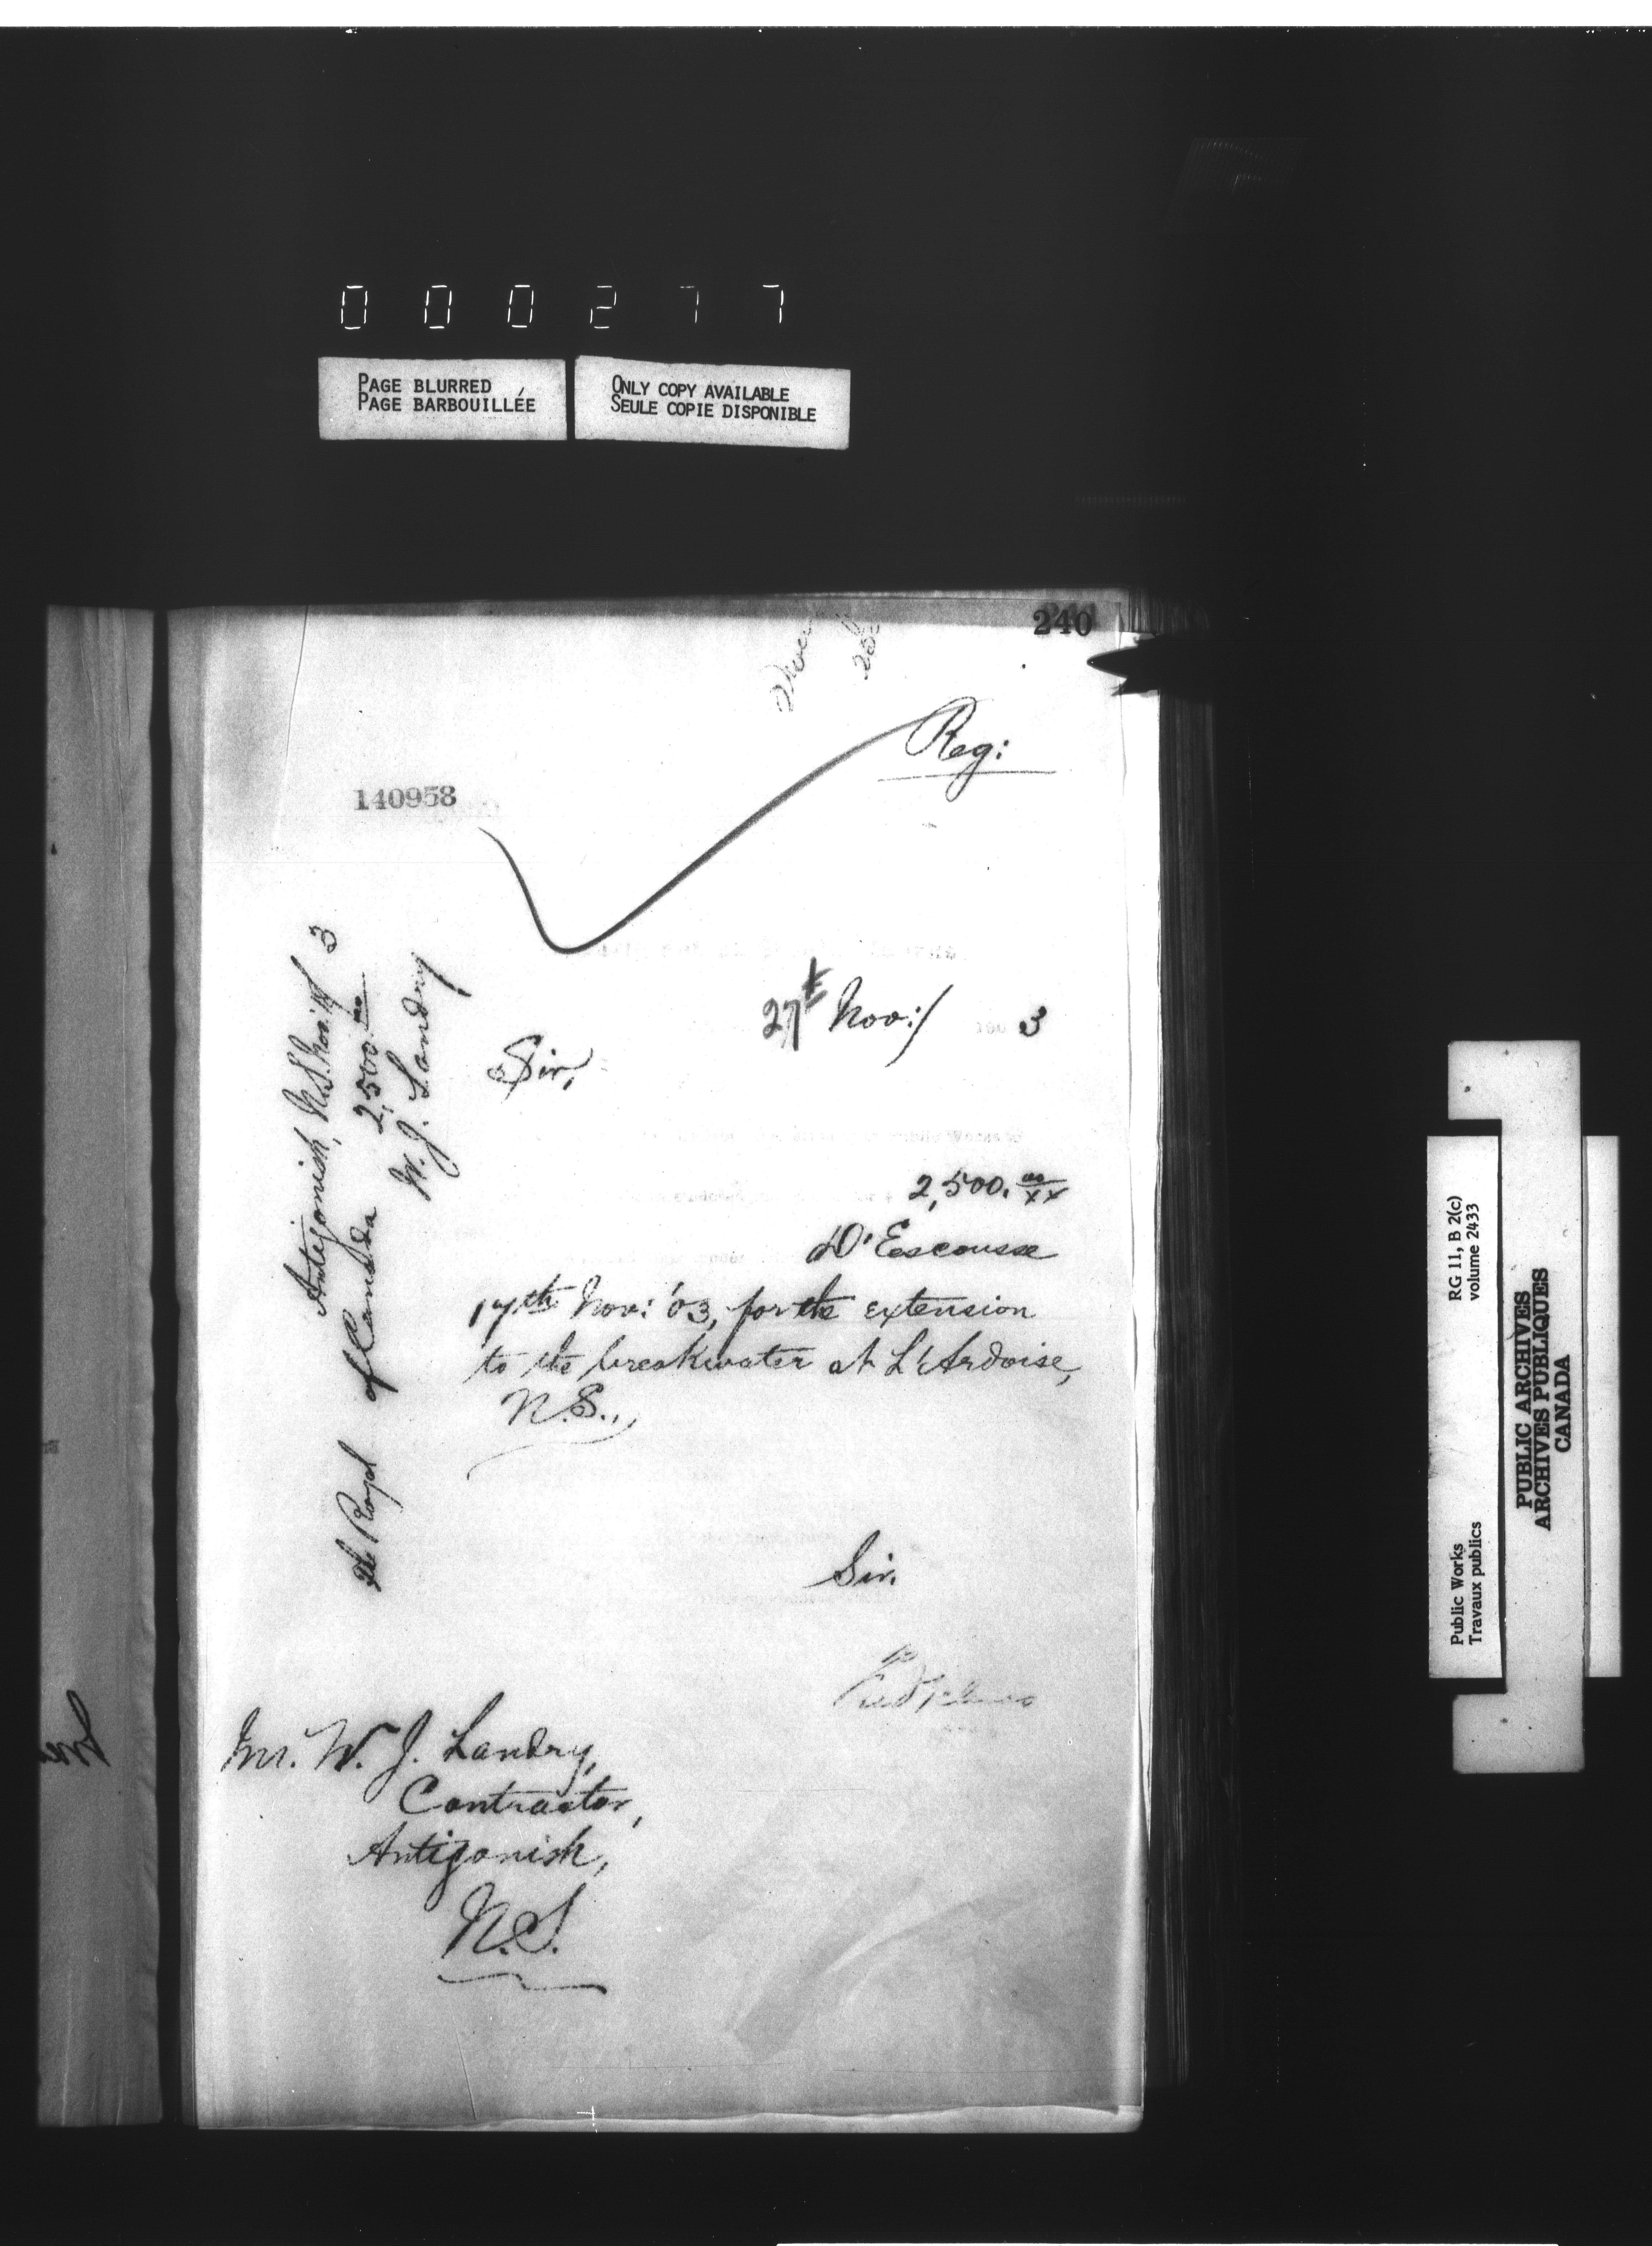 000277
PAGE BLURRED
PAGE BARBOUILLÉE
ONLY COPY AVAILABLE
SEULE COPIE DISPONIBLE
240
Reg:
140958
27th Nov:/ 3
Sir,
2,500. 00/xx
D'Escousse
17th Nov: '03, for the extension
to the breakwater at L'Ardoise,
N.S.,
Sir.
Mr. W. J. Landry,
Contractor,
Antigonish,
N.S.
Antigonish, N.S. Nov: 17 3
the Royal of Canada 2,500.00
W. J. Landry
Public Works
Travaux publics
RG 11, B 2(c)
volume 2433
PUBLIC ARCHIVES
ARCHIVES PUBLIQUES
CANADA